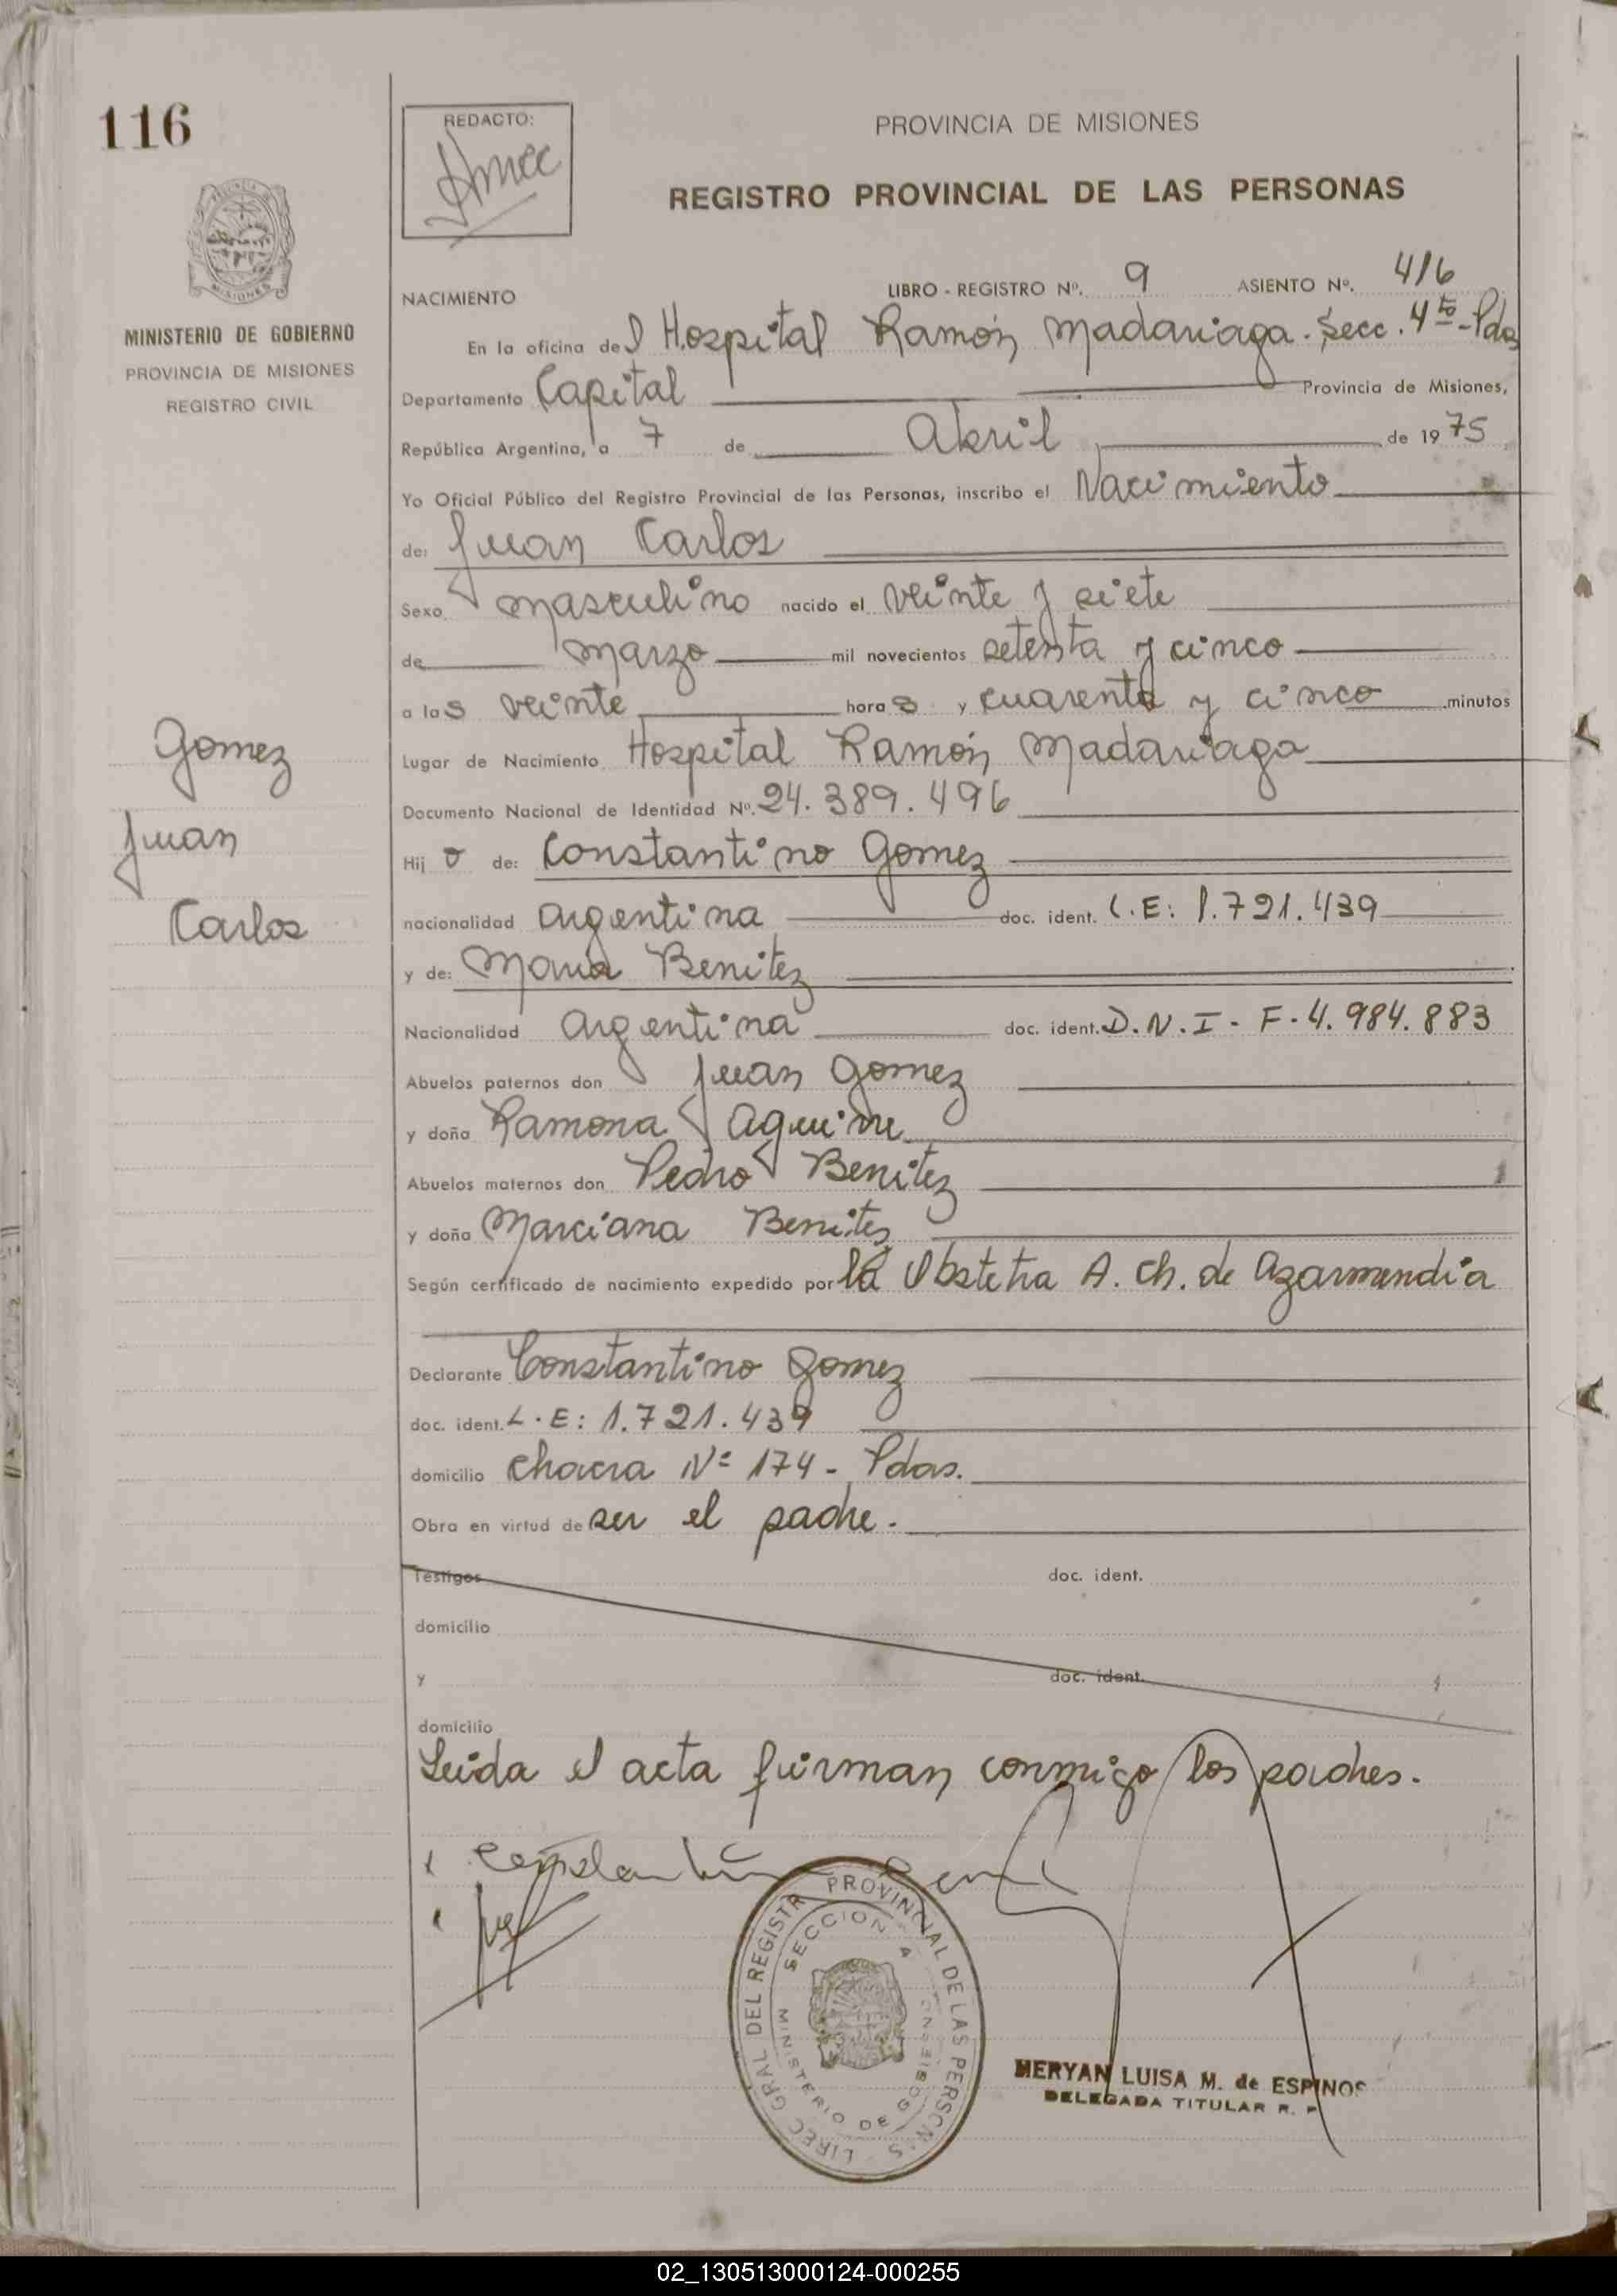 116
REDACTO:
PROVINCIA DE MISIONES
REGISTRO PROVINCIAL DE LAS PERSONAS
MISIONES
MINISTERIO DE GOBIERNO
PROVINCIA DE MISIONES
REGISTRO CIVIL
NACIMIENTO LIBRO - REGISTRO Nº. 9 ASIENTO Nº. 416
En la oficina del Hospital Ramón Madariaga. Secc. 4ta - Pdas
Departamento Capital Provincia de Misiones,
República Argentina, a 7 de Abril de 1975
Yo Oficial Público del Registro Provincial de las Personas, inscribo el Nacimiento
de: Juan Carlos
Sexo masculino nacido el veinte y siete
de marzo mil novecientos setenta y cinco
a las veinte horas y cuarenta y cinco minutos
Lugar de Nacimiento Hospital Ramón Madariaga
Documento Nacional de Identidad Nº. 24.389.496
Hijo de: Constantino Gomez
nacionalidad argentina doc. ident. L.E: 1.721.439
y de: Maria Benitez
Nacionalidad argentina doc. ident. D.N.I - F- 4.984.883
Abuelos paternos don Juan Gomez
y doña Ramona Aguirre
Abuelos maternos don Pedro Benitez
y doña Marciana Benites
Según certificado de nacimiento expedido por la Obstetra A. Ch. de Azarmendia
Declarante Constantino Gomez
doc. ident. L.E: 1.721.439
domicilio chacra Nº 174 - Pdas.
Obra en virtud de ser el padre.
Testigos doc. ident.
domicilio
y doc. ident.
domicilio
Leida el acta firman conmigo los padres.
Gomez
Juan
Carlos
DIREC GRAL DEL REGISTR PROVINCIAL DE LAS PERSONAS
SECCION 4
MINISTERIO DE GOBIERNO
MERYAN LUISA M. de ESPINOS
DELEGADA TITULAR R. P
02_130513000124-000255